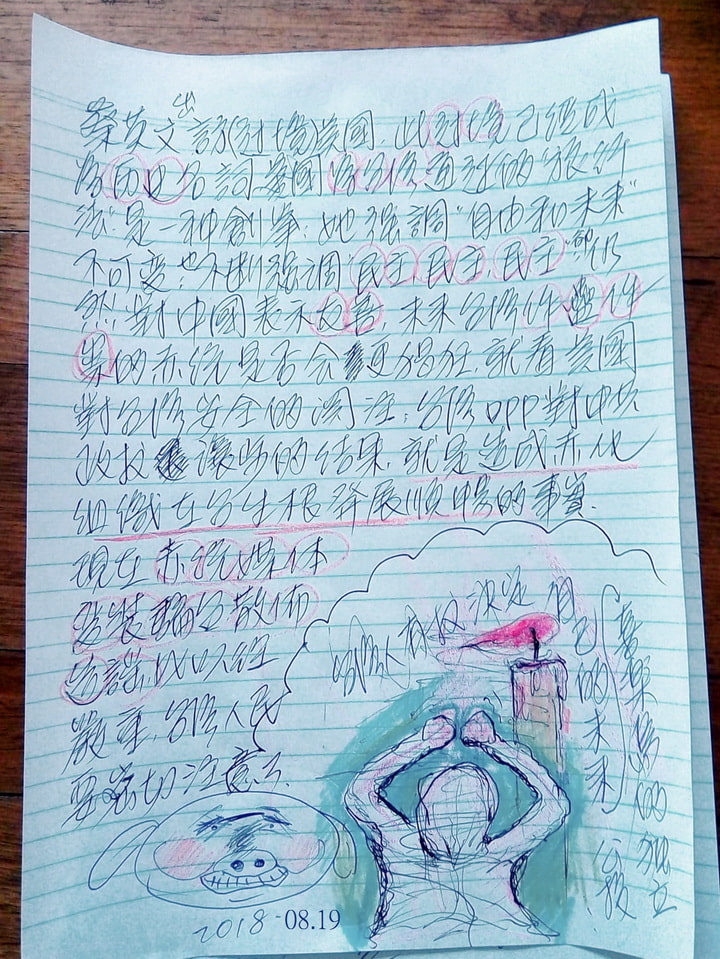 蔡英文出訪(過境)美國,此過境已經成
為歷史名詞.美國為台灣通過的"旅行
法"是一種創舉;她強調"自由和未來"
不可变,也不斷強調"民主,民主,民主"
對中國表示友善,未來台灣作
的赤統是否會更猖狂,就看美國
對台灣安全的關注;台灣DPP對中共
政权讓步的结果,就是造成赤化
組織在台生根發展順暢的事實.
現在赤統媒体
散佈
謠言
嚴重,台灣人民
要密切注意了.
台灣人有权決定自己的未來
喜樂島的独立公投
2018-08.19